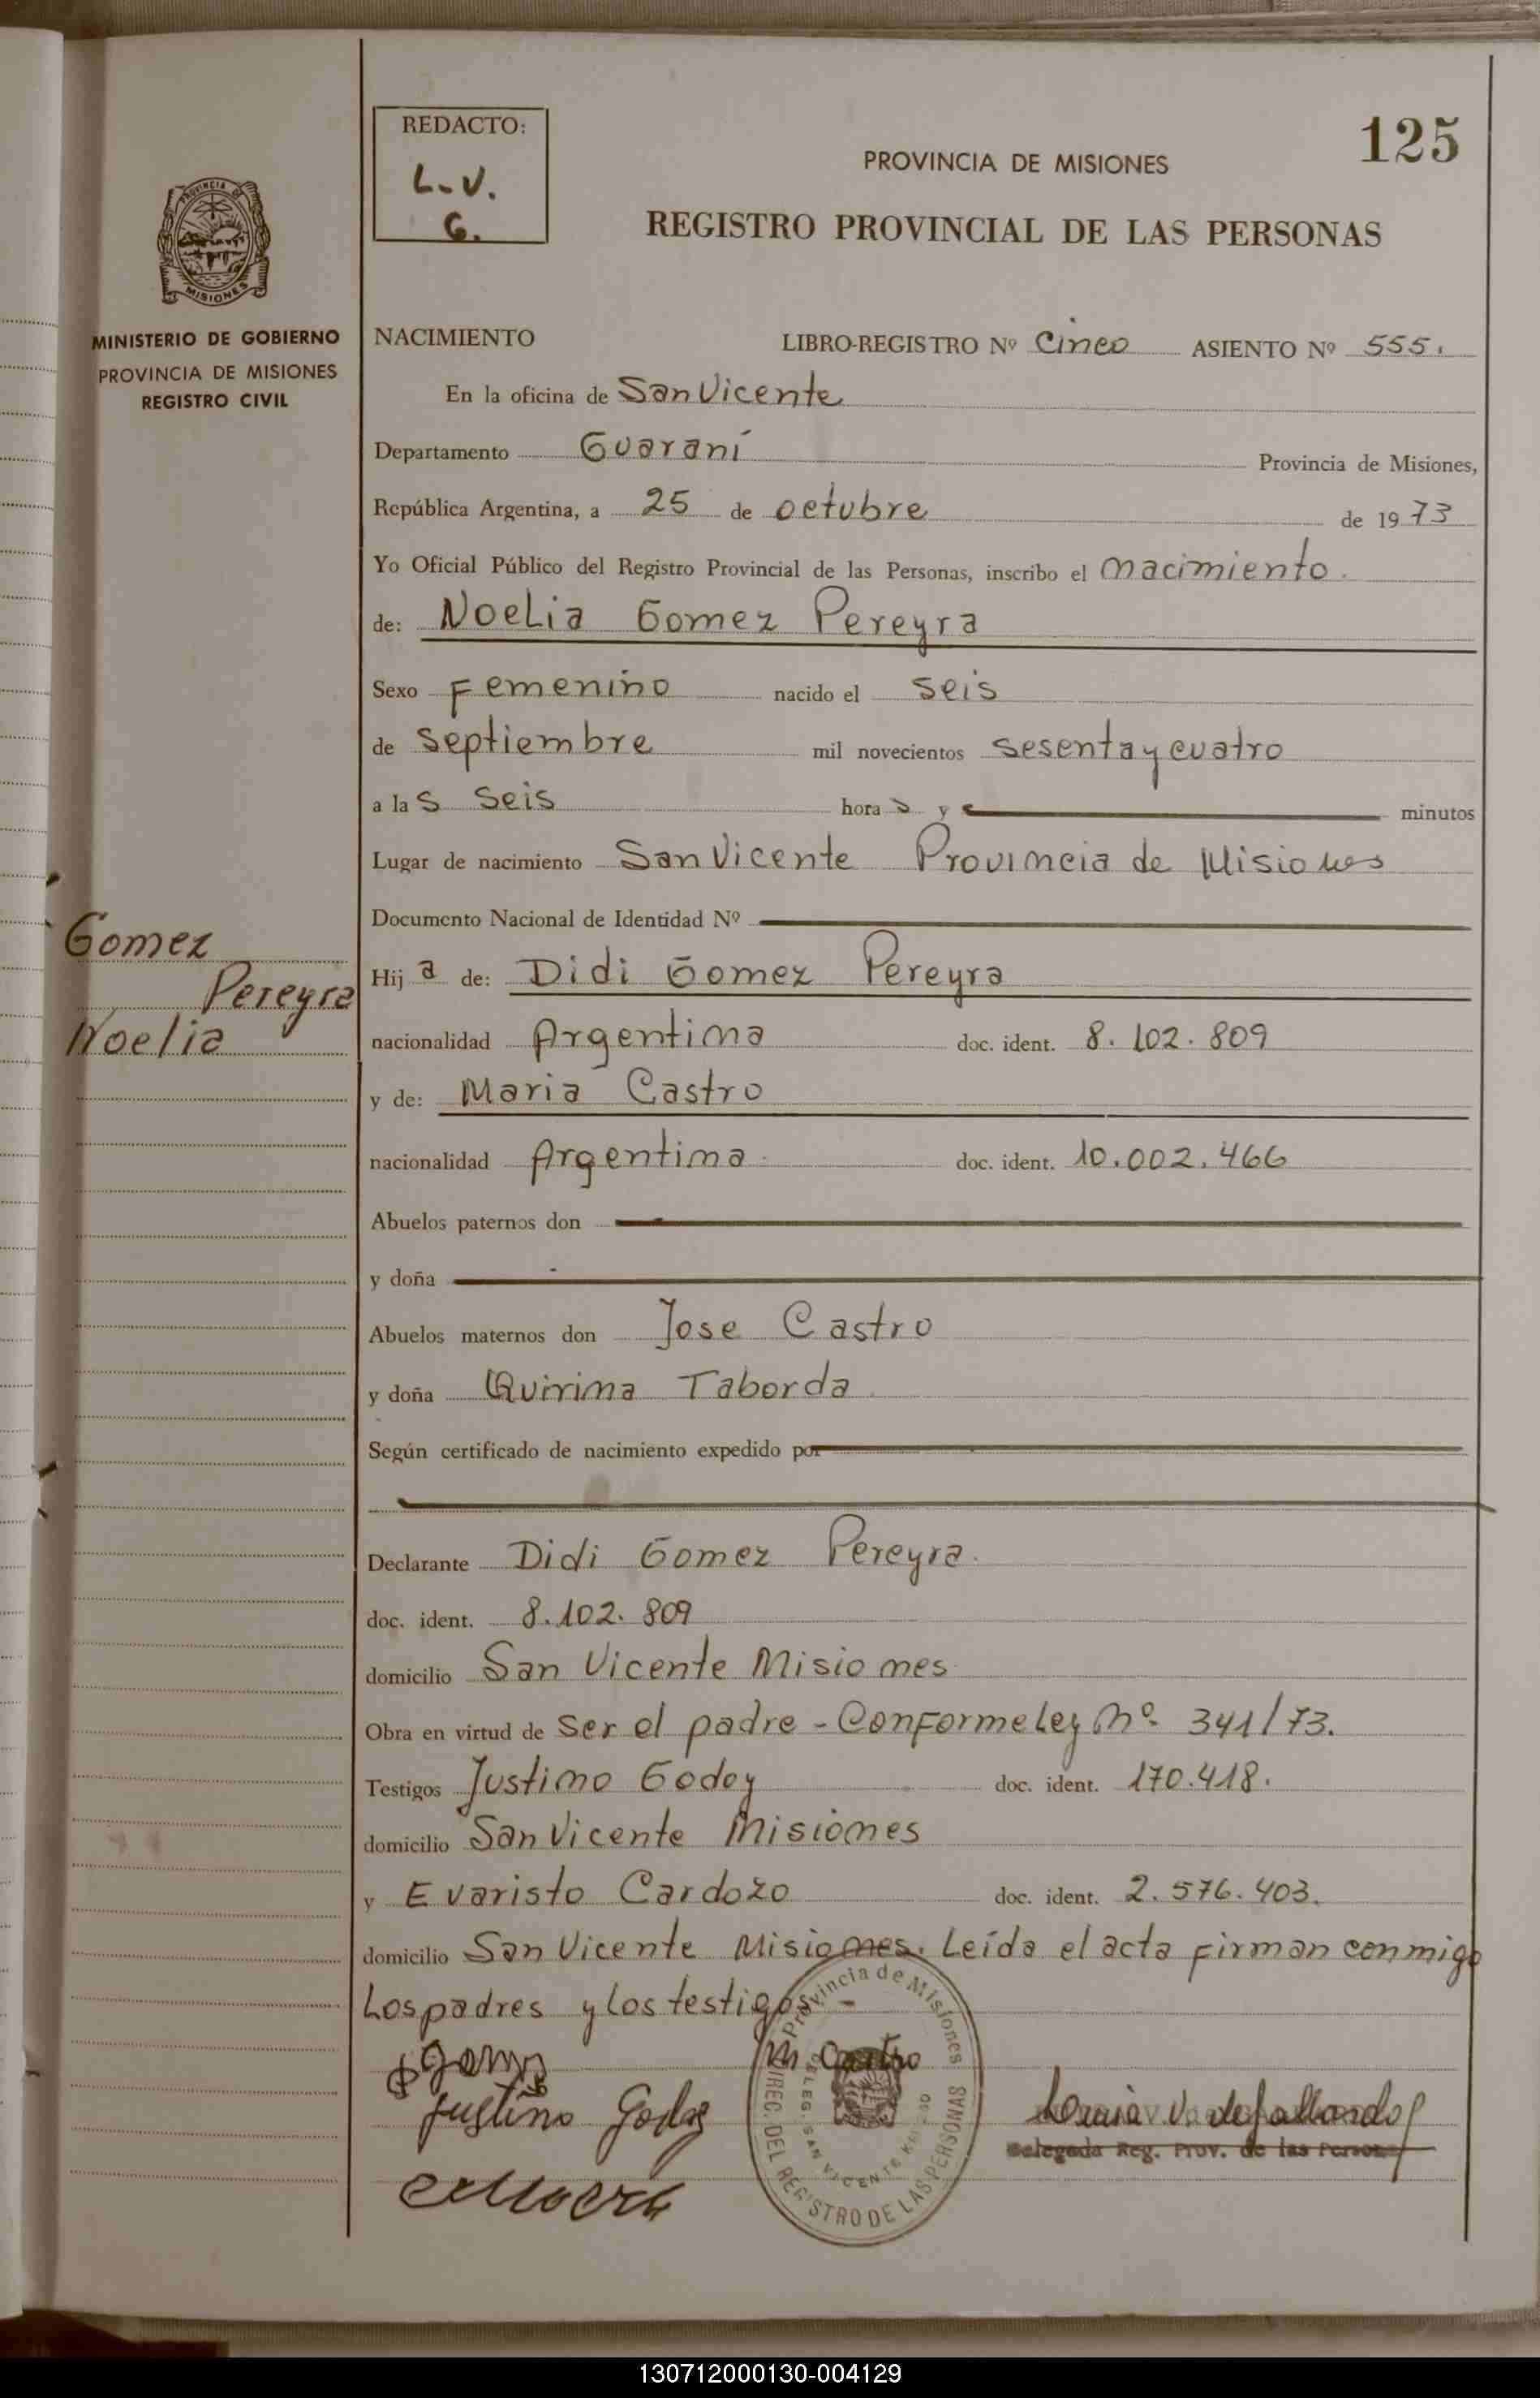 REDACTO:
L.V.
G.
125
PROVINCIA DE MISIONES
REGISTRO PROVINCIAL DE LAS PERSONAS
PROVINCIA DE
MISIONES
MINISTERIO DE GOBIERNO
PROVINCIA DE MISIONES
REGISTRO CIVIL
NACIMIENTO LIBRO-REGISTRO Nº Cinco ASIENTO Nº 555.
En la oficina de San Vicente
Departamento Guaraní Provincia de Misiones,
República Argentina, a 25 de octubre de 1973
Yo Oficial Público del Registro Provincial de las Personas, inscribo el nacimiento.
de: Noelia Gomez Pereyra
Sexo Femenino nacido el seis
de septiembre mil novecientos sesenta y cuatro
a las seis horas y minutos
Lugar de nacimiento San Vicente Provincia de Misiones
Documento Nacional de Identidad Nº
Gomez
Pereyra
Noelia
Hija de: Didi Gomez Pereyra
nacionalidad Argentina doc. ident. 8.102.809
y de: Maria Castro
nacionalidad Argentina doc. ident. 10.002.466
Abuelos paternos don
y doña
Abuelos maternos don Jose Castro
y doña Quirina Taborda
Según certificado de nacimiento expedido por
Declarante Didi Gomez Pereyra.
doc. ident. 8.102.809
domicilio San Vicente Misiones
Obra en virtud de ser el padre - Conforme Ley Nº 341/73.
Testigos Justino Godoy doc. ident. 170.418.
domicilio San Vicente Misiones
y Evaristo Cardozo doc. ident. 2.576.403.
domicilio San Vicente Misiones. Leída el acta firman conmigo
Los padres y los testigos. -
M Castro
Justino Godoy
Provincia de Misiones
DIREC. DEL REGISTRO DE LAS PERSONAS
DELEG. SAN VICENTE
Delegada Reg. Prov. de las Personas
130712000130-004129